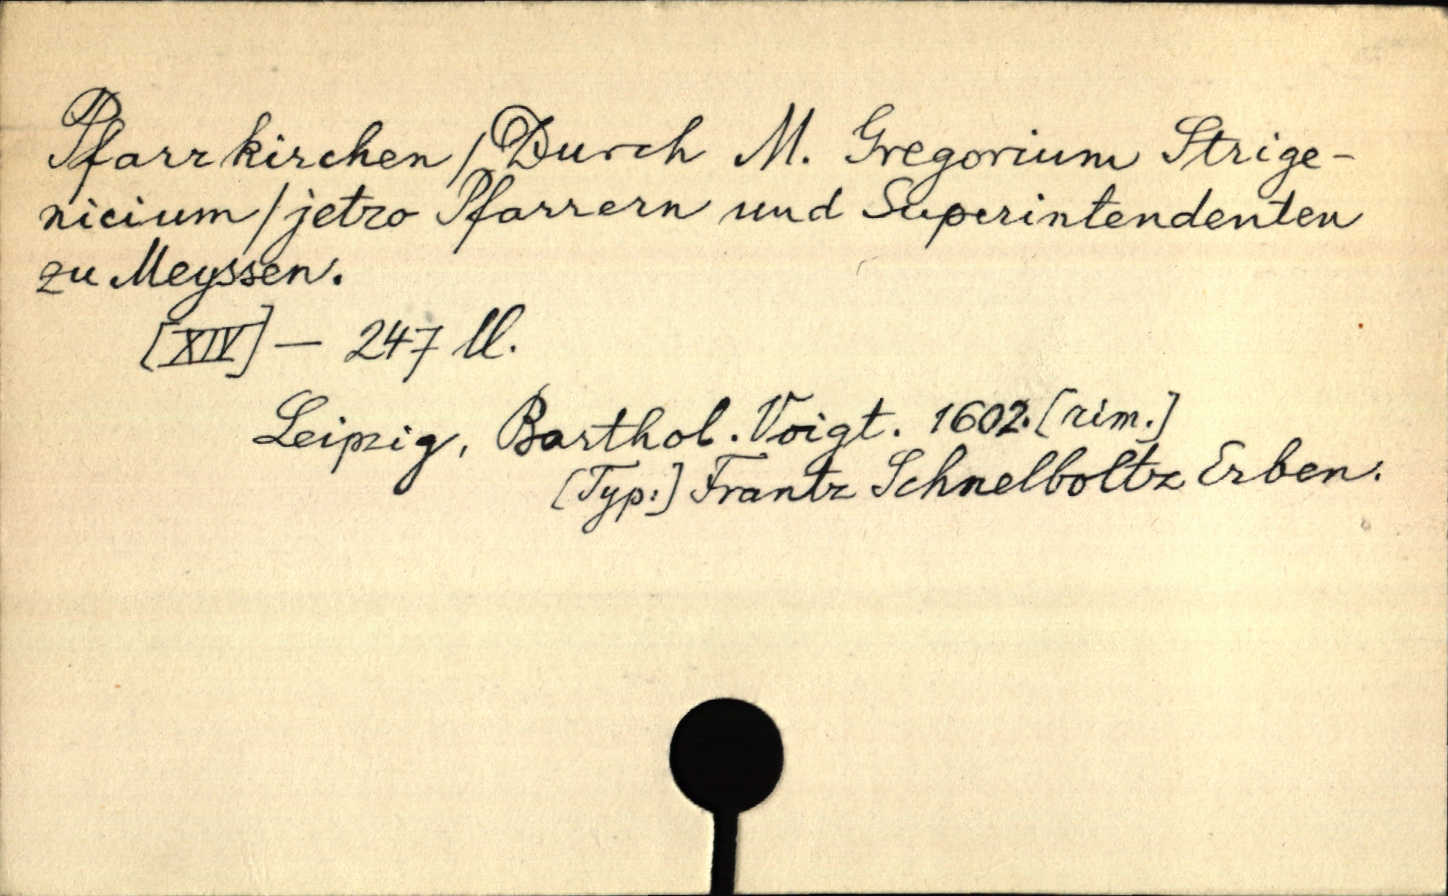 Pfarrkirchen / Durch M. Gregorium Strige-
nicium / jetzo Pfarrern und Superintendenten
zu Meyssen.
[XIV] — 247 ll.
Leipzig, Barthol. Voigt. 1602. [rim.]
[Typ:] Frantz Schnelboltz Erben.